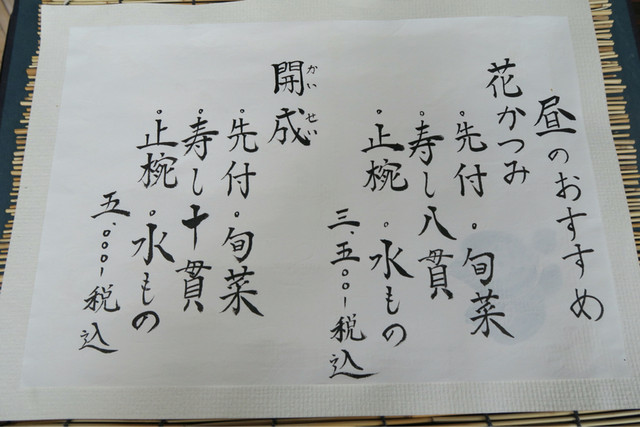 昼のおすすめ
花かつみ
。先付。旬菜
。寿し八貫
。止椀。水もの
三、五〇〇ー税込
開成
かいせい
。先付。旬菜
。寿し十貫
。止椀。水もの
五、〇〇〇ー税込